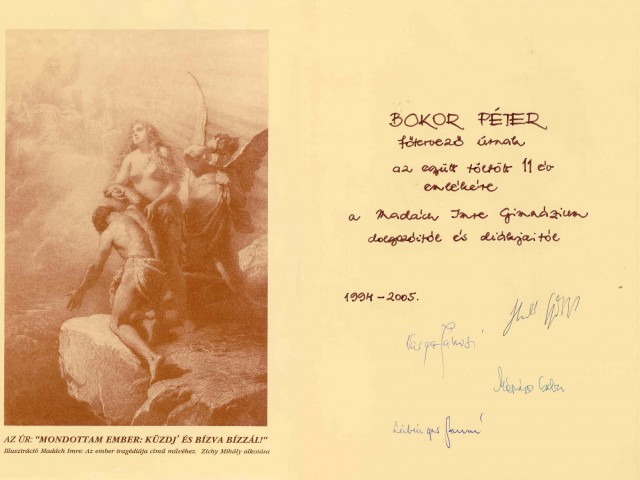 AZ ÚR: "MONDOTTAM EMBER: KÜZDJ' ÉS BÍZVA BÍZZÁL!"
Illusztráció Madách Imre: Az ember tragédiája című művéhez. Zichy Mihály alkotása
BOKOR PÉTER
főtervező úrnak
az együtt töltött 11 év
emlékére
a Madách Imre Gimnázium
dolgozóitól és diákjaitól
1994-2005.